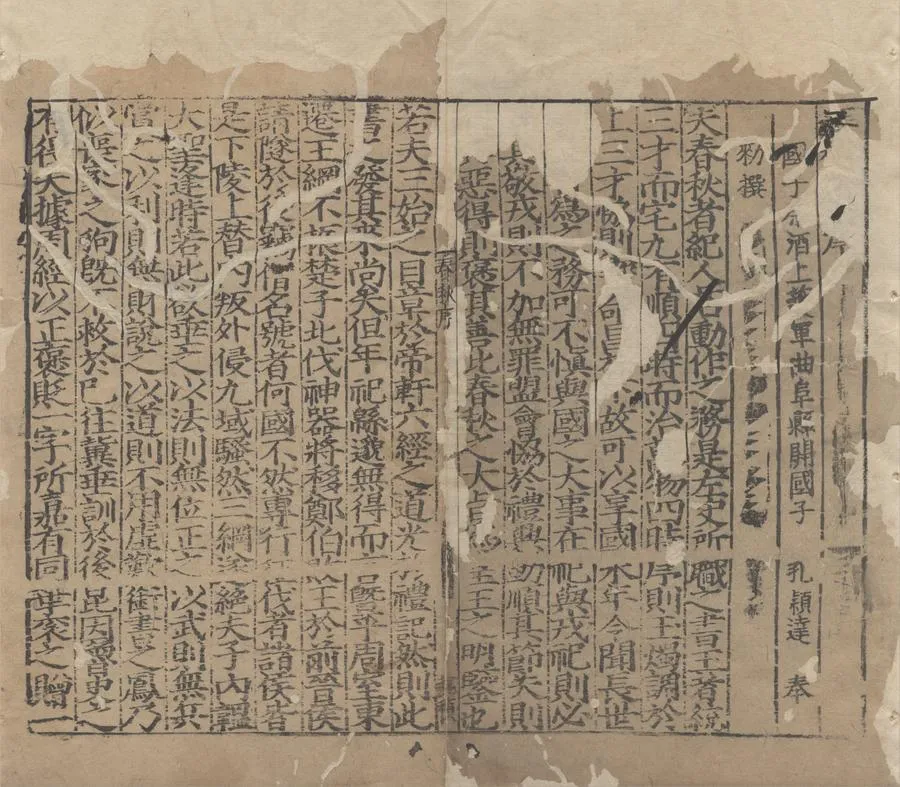 序
國子祭酒上護軍曲阜縣開國子 孔穎達 奉
勑撰
夫春秋者紀人君動作之務是左史所職之書王者統
三才而宅九有順四時而治萬物四時序則玉燭調於
上三才協則 命昌 故可以享國永年令聞長世
為之務可不慎與國之大事在祀與戎祀則必
敬戎則不加無罪盟會協於禮興動順其節失則
惡得則褒其善此春秋之大旨為皇王之明鑒也
春秋序
若夫三始之目章於帝軒六經之道光於禮記然則此
書之發其來尚矣但年祀緜邈無得而言暨乎周室東
遷王綱不振楚子北伐神器將移鄭伯敗王於前晉侯
請隧於後竊僭名號者何國不然專行征伐者諸侯皆
是下陵上替內叛外侵九域騷然三綱遂絕夫子內韞
大聖逢時若此欲垂之以法則無位正之以武則無兵
賞之以利則無財說之以道則不用虛歎銜書之鳳乃
似喪家之狗既不救於已往冀垂訓於後昆因魯史之
有得失據周經以正褒貶一字所嘉有同華袞之贈一